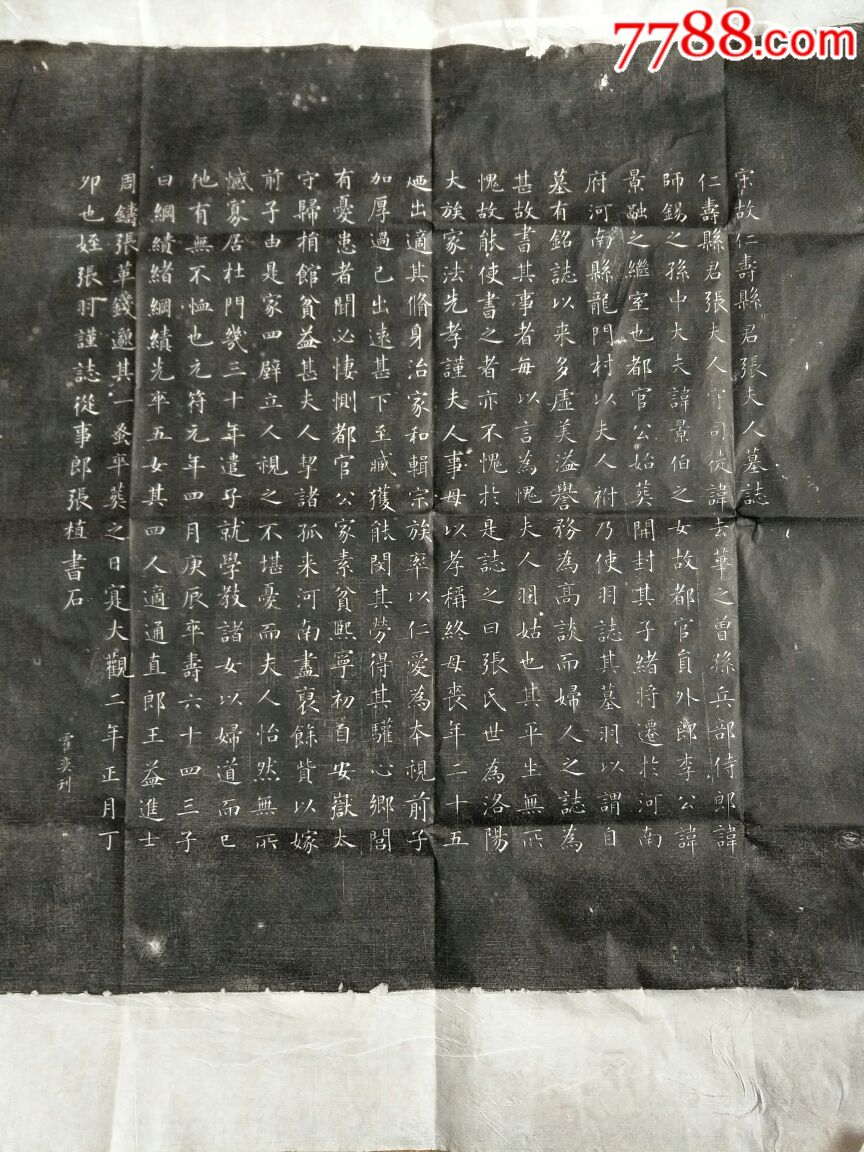 7788.com
宋故仁壽縣君張夫人墓誌
仁壽縣君張夫人守司徒諱去華之曾孫兵部侍郎諱
師錫之孫中大夫諱景伯之女故都官員外郎李公諱
景融之繼室也都官公始葬開封其子緒將遷於河南
府河南縣龍門村以夫人祔乃使羽誌其墓羽以謂自
墓有銘誌以来多虛美溢譽務為高談而婦人之誌為
甚故書其事者每以言為愧夫人羽姑也其平生無所
愧故能使書之者亦不愧於是誌之曰張氏世為洛陽
大族家法先孝謹夫人事母以孝稱終母喪年二十五
廼出適其脩身治家和輯宗族率以仁愛為本視前子
加厚過己出遠甚下至臧獲能閔其勞得其驩心鄉閭
有憂患者聞必悽惻都官公家素貧熙寧初酋安嶽太
守歸捐館貧益甚夫人挈諸孤来河南盡裒餘貲以嫁
前子由是家四壁立人視之不堪憂而夫人怡然無所
憾寡居杜門幾三十年遣子就學教諸女以婦道而已
他有無不恤也元符元年四月庚辰卒壽六十四三子
曰綱績緒綱績先卒五女其四人適通直郎王益進士
周鑄張革錢邈其一蚤卒葬之日寔大觀二年正月丁
卯也姪張羽謹誌從事郎張植書石
奕刋